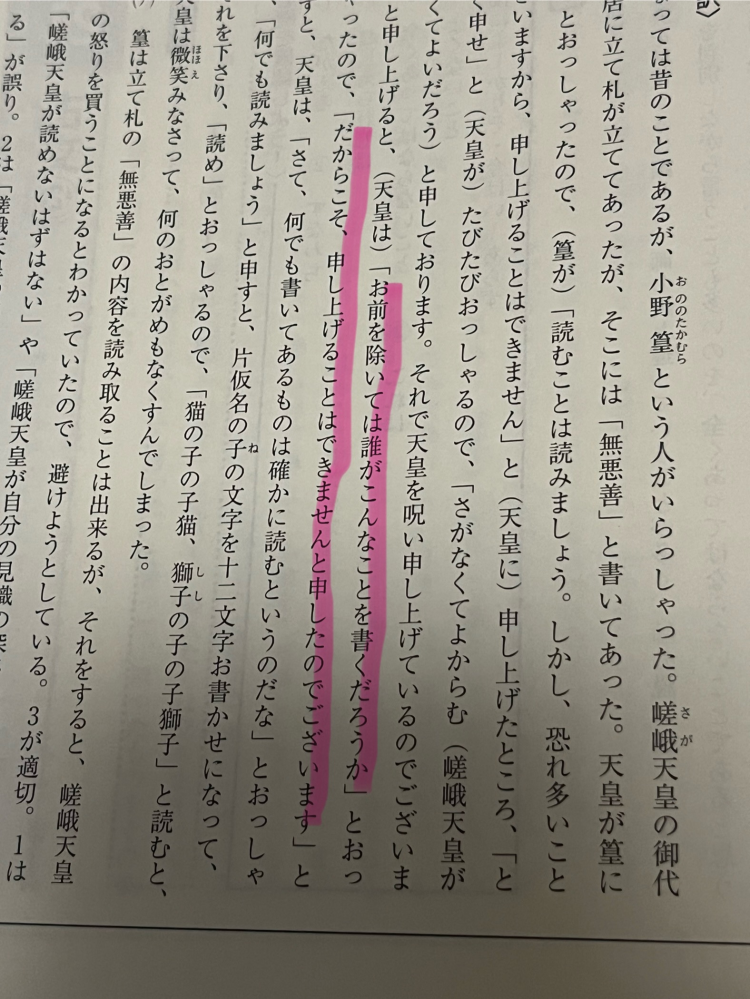 訳〉
まっては昔のことであるが、小野篁という人がいらっしゃった。嵯峨天皇の御代
居に立て札が立ててあったが、そこには「無悪善」と書いてあった。天皇が篁に
とおっしゃったので、(篁が)「読むことは読みましょう。しかし、恐れ多いこと
いますから、申し上げることはできません」と(天皇に)申し上げたところ、「と
く申せ」と(天皇が)たびたびおっしゃるので、「さがなくてよからむ(嵯峨天皇が
くてよいだろう)と申しております。それで天皇を呪い申し上げているのでございま
と申し上げると、(天皇は)「お前を除いては誰がこんなことを書くだろうか」とおっ
ゃったので、「だからこそ、申し上げることはできませんと申したのでございます」と
すと、天皇は、「さて、何でも書いてあるものは確かに読むというのだな」とおっしゃ
、「何でも読みましょう」と申すと、片仮名の子の文字を十二文字お書かせになって、
それを下さり、「読め」とおっしゃるので、「猫の子の子猫、獅子の子の子獅子」と読むと、
天皇は微笑みなさって、何のおとがめもなくすんでしまった。
篁は立て札の「無悪善」の内容を読み取ることは出来るが、それをすると、嵯峨天皇
の怒りを買うことになるとわかっていたので、避けようとしている。3が適切。1は
「嵯峨天皇が読めないはずはない」や「嵯峨天皇が自分の見識の
る」が誤り。2は「嵯峨天皇